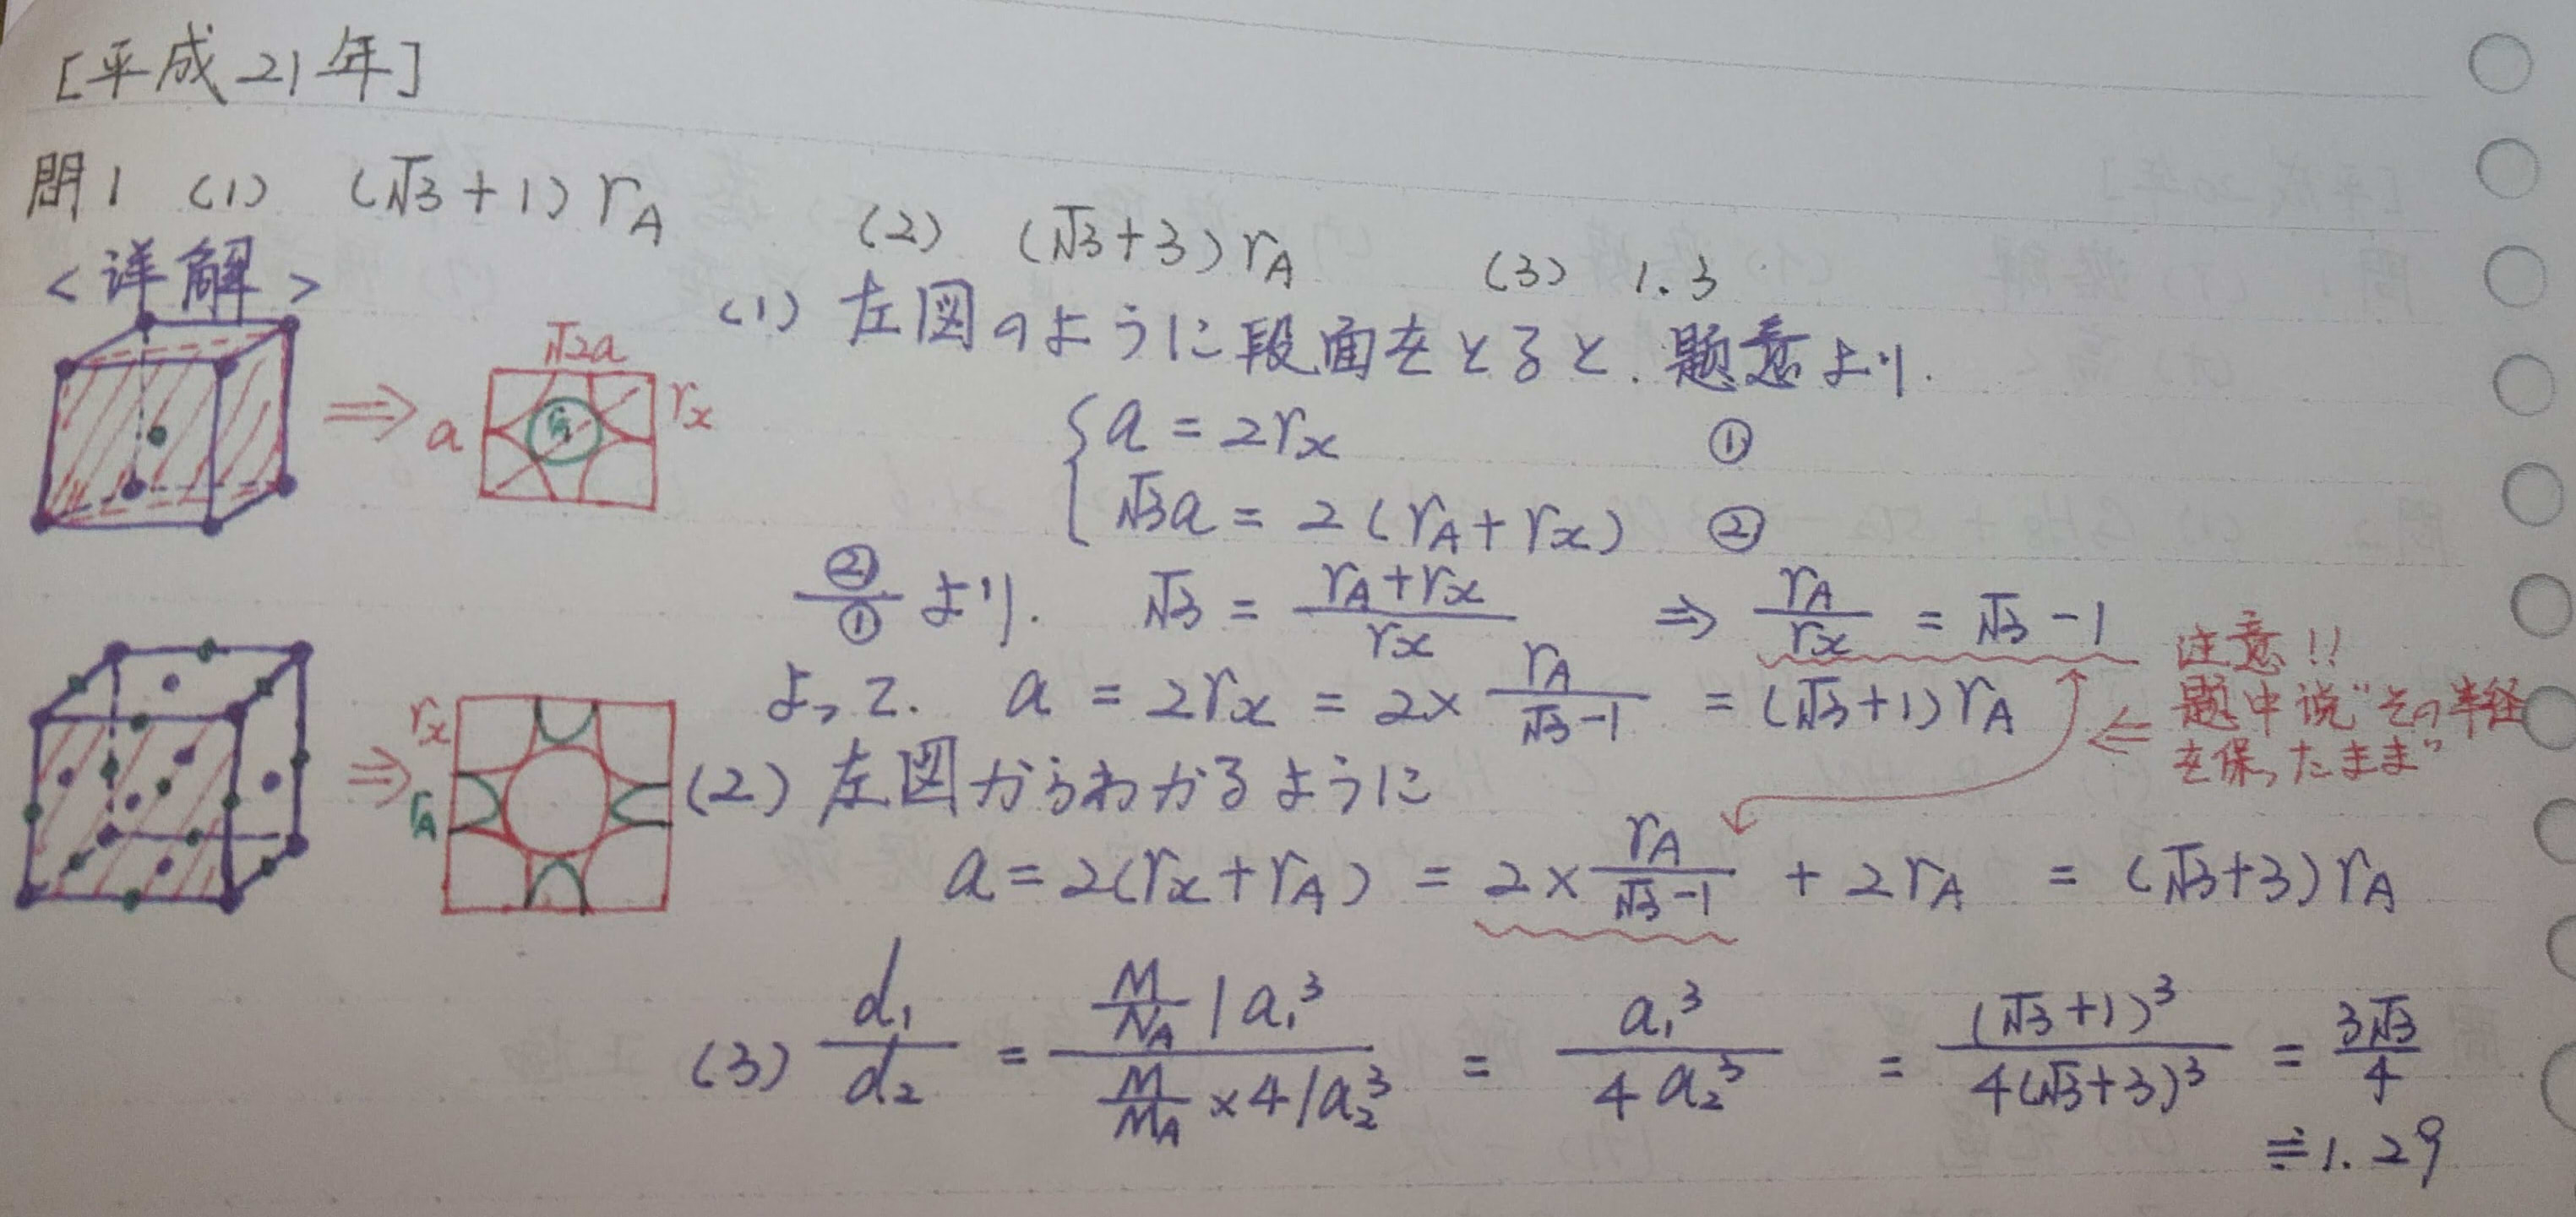 [平成21年]
問1 (1) (√3+1) rA (2) (√3+3) rA (3) 1.3
<详解>
(1) 左図のように段面をとると、題意より.
√2a
a
rx
rA
{ a = 2rx ①
√3a = 2(rA+rx) ②
②/① より. √3 = (rA+rx)/rx ⇒ rA/rx = √3-1
よって. a = 2rx = 2× rA/(√3-1) = (√3+1) rA
注意!!
题中说"その半径
を保ったまま"
rx
rA
(2) 左図からわかるように
a = 2(rx+rA) = 2× rA/(√3-1) + 2rA = (√3+3) rA
(3) d₁/d₂ = (M/NA / a₁³)/(M/MA ×4/a₂³) = a₁³/4a₂³ = (√3+1)³/4(√3+3)³ = 3√3/4
≒1.29